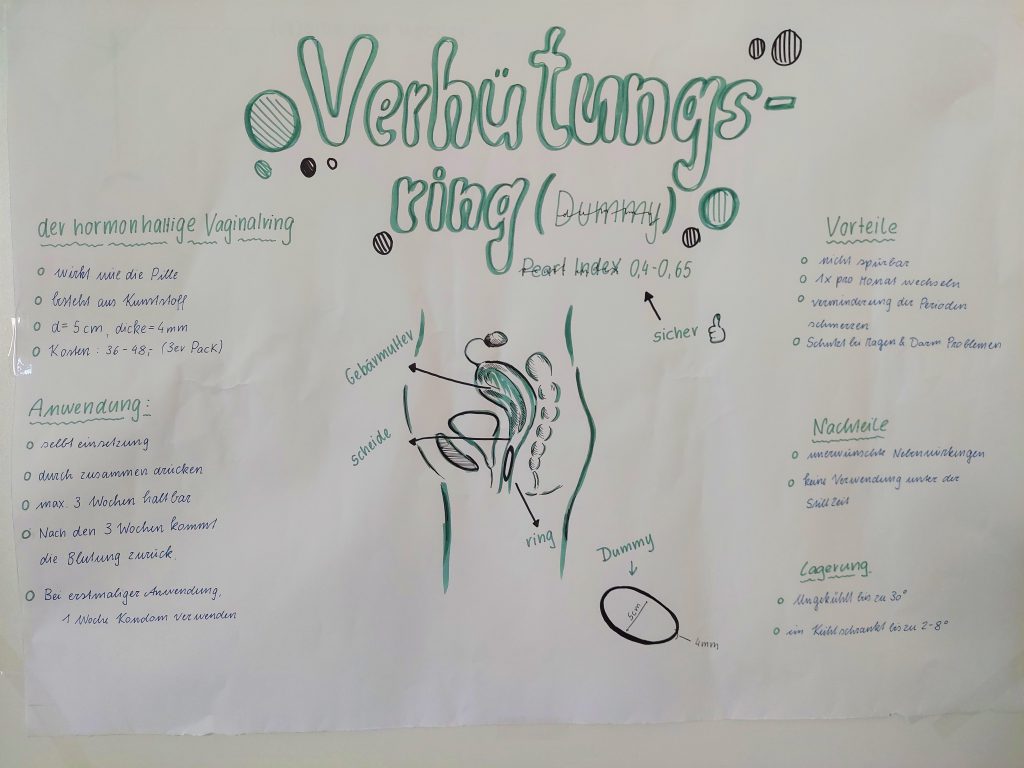 Verhütungs-
ring (Dummy)
Pearl Index 0,4-0,65
sicher
der hormonhaltige Vaginalring
wirkt wie die Pille
besteht aus Kunststoff
d= 5 cm, dicke = 4 mm
Kosten : 36 - 48,- (3er Pack)
Anwendung:
selbst einsetzung
durch zusammen drücken
max. 3 Wochen haltbar
Nach den 3 Wochen kommt
die Blutung zurück.
Bei erstmaliger Anwendung,
1 Woche Kondom verwenden
Gebärmutter
scheide
ring
Dummy
5cm
4mm
Vorteile
nicht spürbar
1x pro Monat wechseln
verminderung der Perioden
schmerzen
Schutz bei Magen & Darm Problemen
Nachteile
unerwünschte Nebenwirkungen
keine Verwendung unter der
Stillzeit
Lagerung
Ungekühlt bis zu 30°
im Kühlschrankt bis zu 2-8°